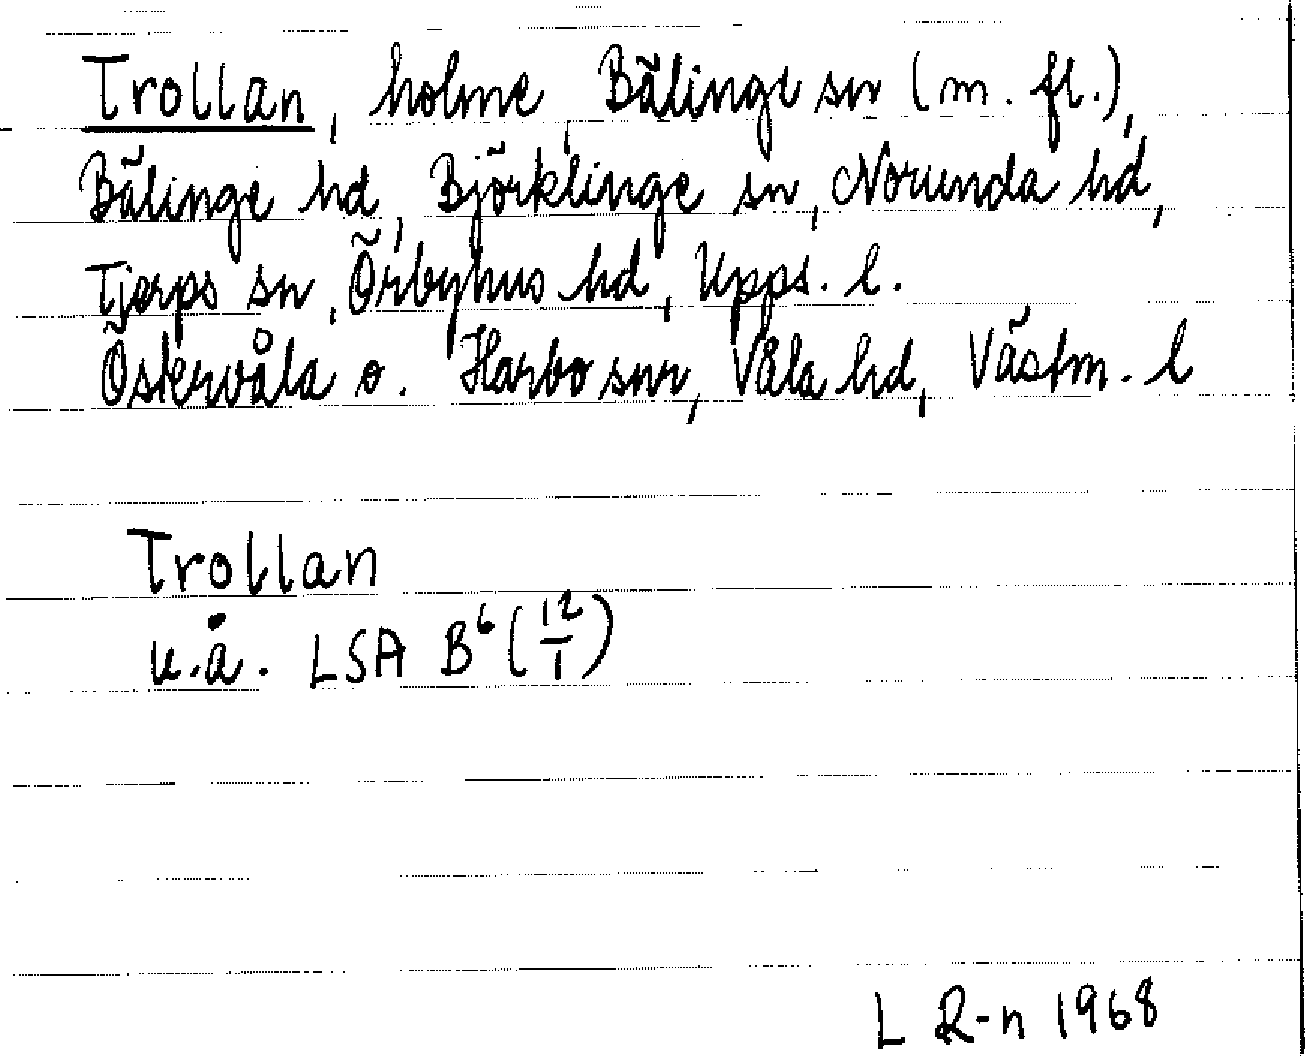 Trollan, holme Bälinge sn (m. fl.),
Bälinge hd, Björklinge sn, Norunda hd,
Tjerps sn, Örbyhus hd, Upps. l.
Östervåla o. Harbo snr, Våla hd, Västm. l
Trollan
u.å. LSA B⁶ (12/1)
L R-n 1968